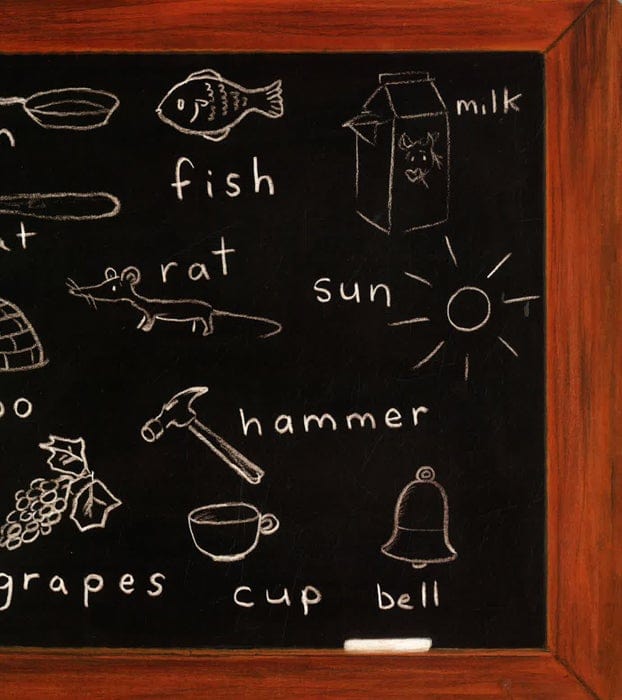 milk
fish
rat
sun
hammer
grapes
cup
bell